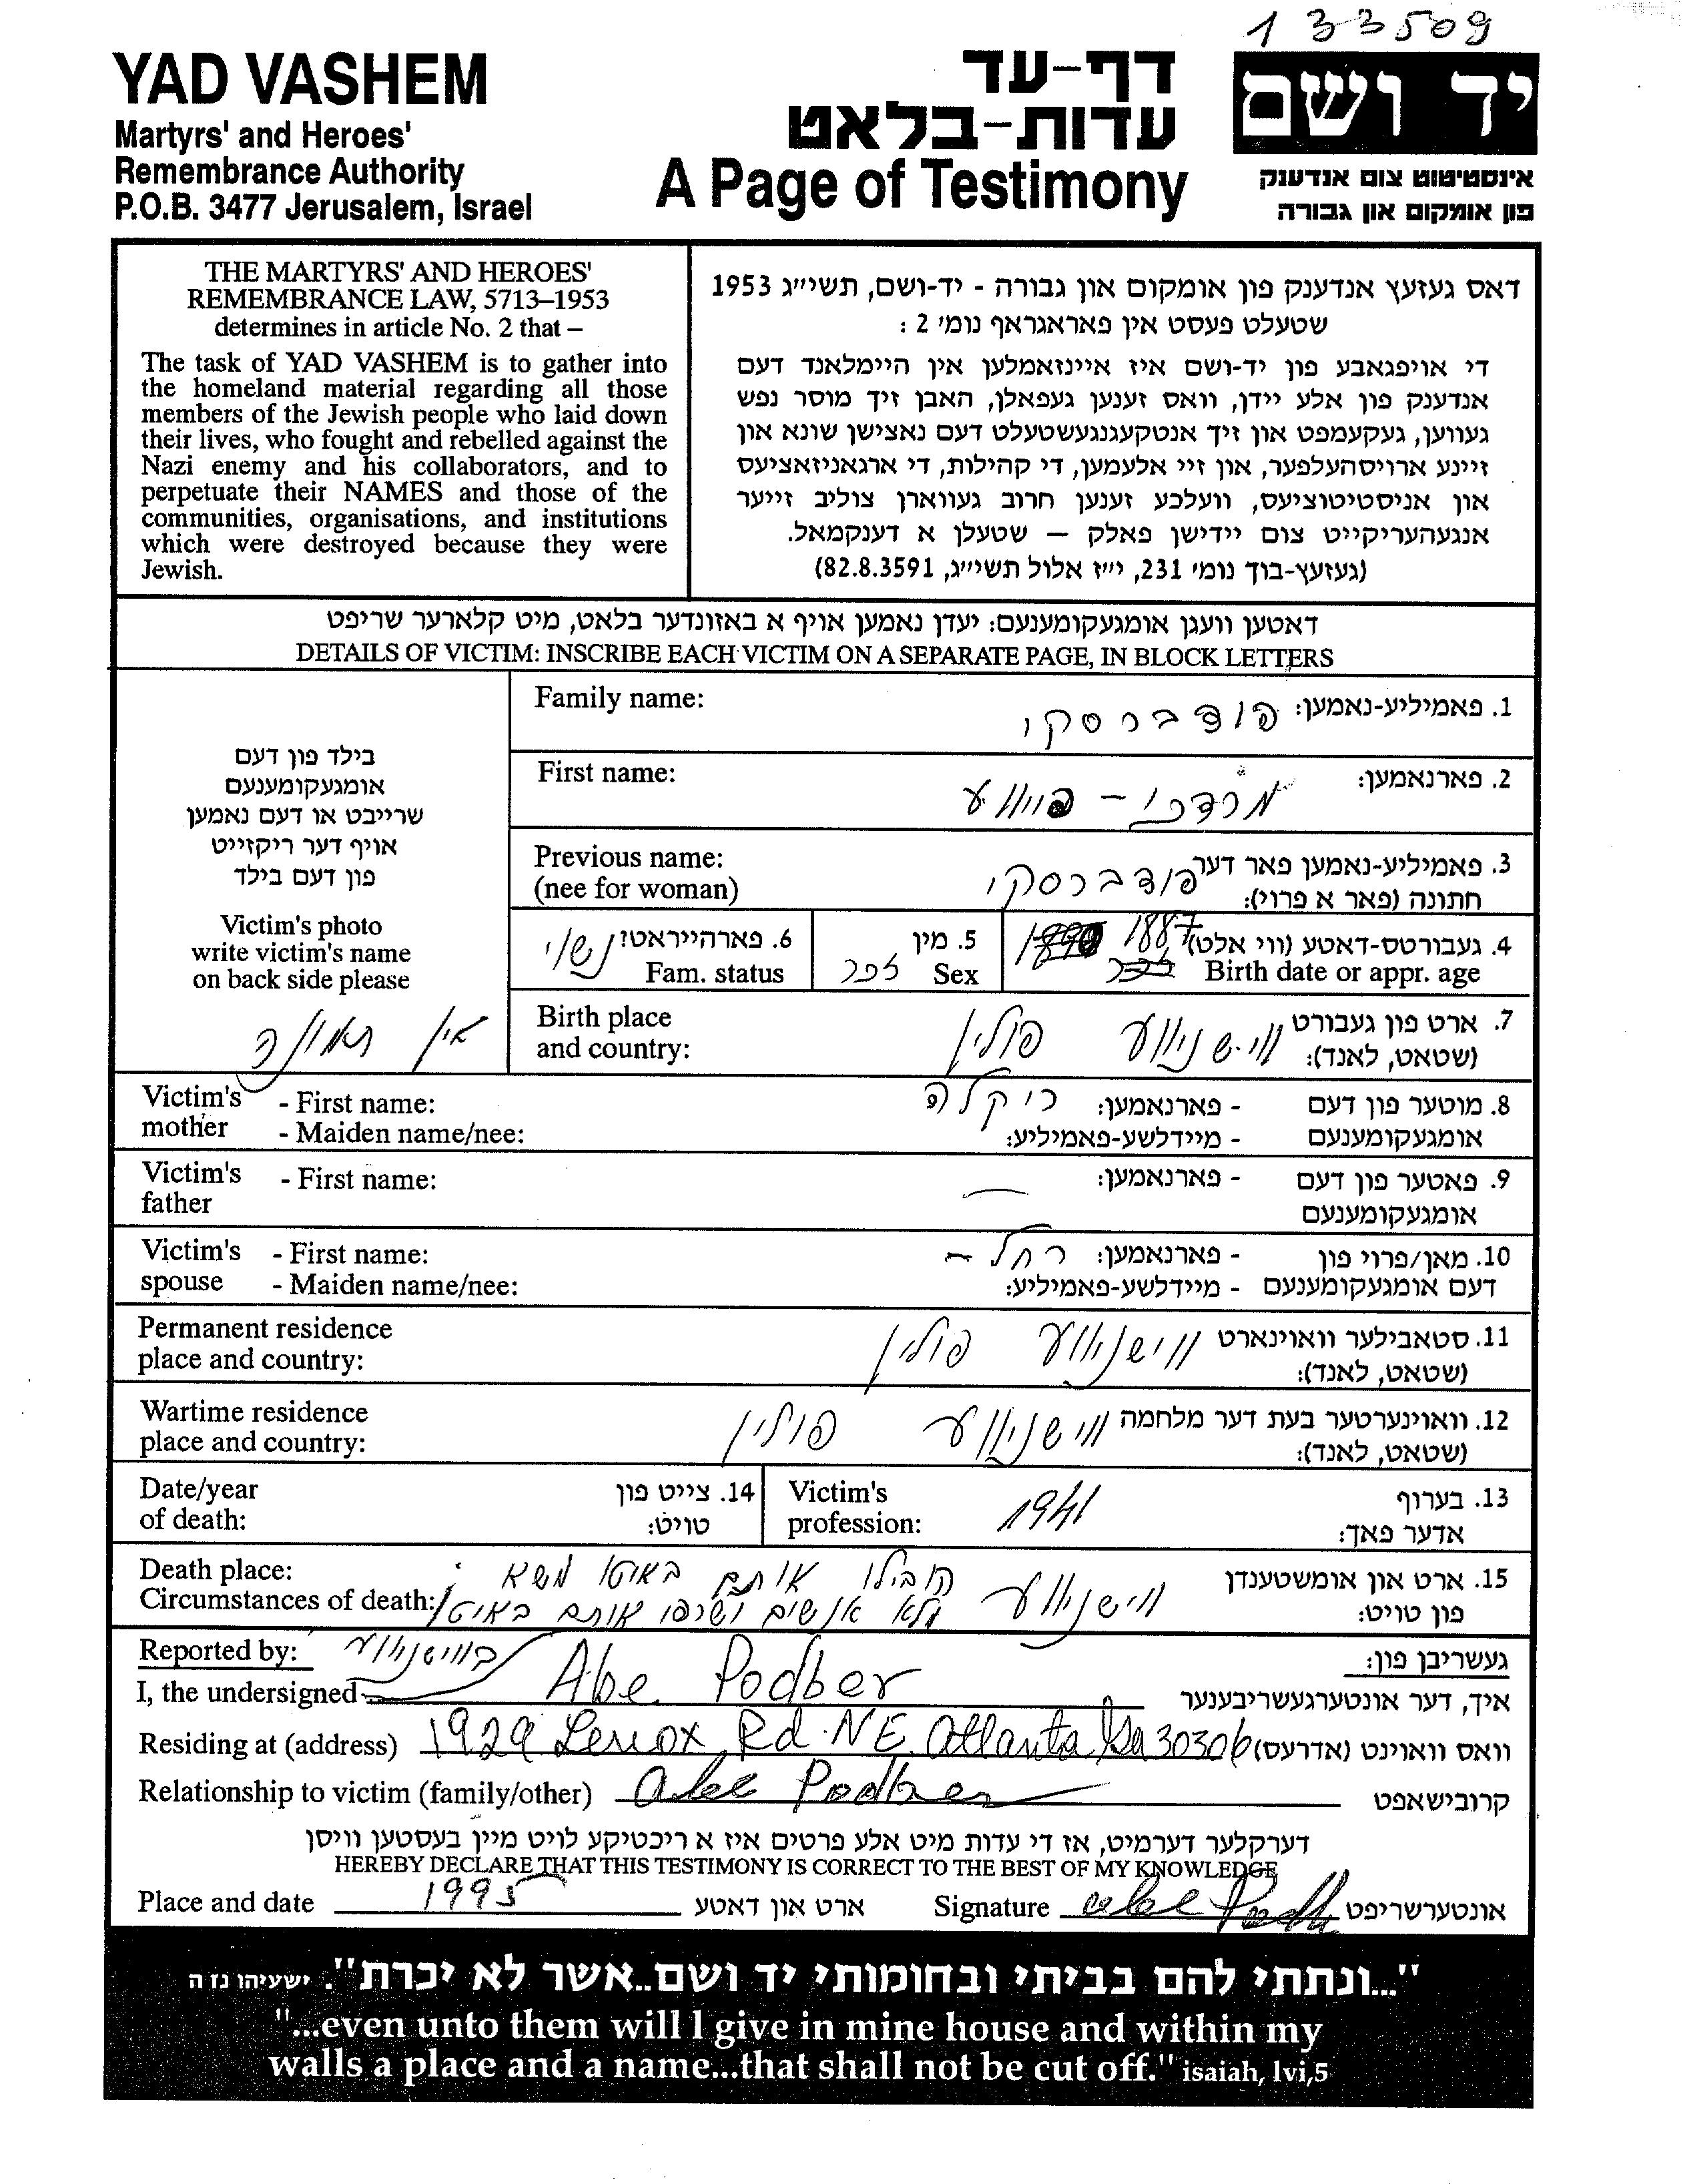 133509
YAD VASHEM
Martyrs' and Heroes'
Remembrance Authority
P.O.B. 3477 Jerusalem, Israel
דף-עד
עדות-בלאט
A Page of Testimony
יד ושם
אינסטיטוט צום אנדענק
פון אומקום און גבורה
THE MARTYRS' AND HEROES'
REMEMBRANCE LAW, 5713–1953
determines in article No. 2 that –
The task of YAD VASHEM is to gather into
the homeland material regarding all those
members of the Jewish people who laid down
their lives, who fought and rebelled against the
Nazi enemy and his collaborators, and to
perpetuate their NAMES and those of the
communities, organisations, and institutions
which were destroyed because they were
Jewish.
דאס געזעץ אנדענק פון אומקום און גבורה - יד-ושם, תשי״ג 1953
שטעלט פעסט אין פאראגראף נומי 2 :
די אויפגאבע פון יד-ושם איז איינזאמלען אין היימלאנד דעם
אנדענק פון אלע יידן, וואס זענען געפאלן, האבן זיך מוסר נפש
געווען, געקעמפט און זיך אנטקעגנגעשטעלט דעם נאצישן שונא און
זיינע ארויסהעלפער, און זיי אלעמען, די קהילות, די ארגאניזאציעס
און אניסטיטוציעס, וועלכע זענען חרוב געווארן צוליב זייער
אנגעהעריקייט צום יידישן פאלק – שטעלן א דענקמאל.
(געזעץ-בוך נומי 231, י״ז אלול תשי״ג, 82.8.3591)
דאטען וועגן אומגעקומענעם: יעדן נאמען אויף א באזונדער בלאט, מיט קלארער שריפט
DETAILS OF VICTIM: INSCRIBE EACH VICTIM ON A SEPARATE PAGE, IN BLOCK LETTERS
בילד פון דעם
אומגעקומענעם
שרייבט או דעם נאמען
אויף דער ריקזייט
פון דעם בילד
Victim's photo
write victim's name
on back side please
אין תמונה
Family name: פודברסקי 1. פאמיליע-נאמען:
First name: מרדכי - פייווע 2. פארנאמען:
Previous name: פודברסקי 3. פאמיליע-נאמען פאר דער
(nee for woman) חתונה (פאר א פרוי):
נשוי 6. פארהייראט? זכר 5. מין 1887 4. געבורטס-דאטע (ווי אלט)
Fam. status Sex Birth date or appr. age
Birth place ווישניווע פולין 7. ארט פון געבורט
and country: (שטאט, לאנד):
Victim's - First name: ריקלה - פארנאמען: 8. מוטער פון דעם
mother - Maiden name/nee: - מיידלשע-פאמיליע: אומגעקומענעם
Victim's - First name: - פארנאמען: 9. פאטער פון דעם
father אומגעקומענעם
Victim's - First name: רחל - - פארנאמען: 10. מאן/פרוי פון
spouse - Maiden name/nee: - מיידלשע-פאמיליע: דעם אומגעקומענעם
Permanent residence ווישניווע פולין 11. סטאבילער וואוינארט
place and country: (שטאט, לאנד):
Wartime residence ווישניווע פולין 12. וואוינערטער בעת דער מלחמה
place and country: (שטאט, לאנד):
Date/year 14. צייט פון Victim's 1941 13. בערוף
of death: טויט: profession: אדער פאך:
Death place: הובילו אותם באוטו משא 15. ארט און אומשטענדן
Circumstances of death: ווישניווע מלא אנשים ושרפו אותם באוטו פון טויט:
Reported by: בווישניווע געשריבן פון:
I, the undersigned Abe Podber איך, דער אונטערגעשריבענער
Residing at (address) 1929 Lenox Rd. NE. Atlanta Ga 30306 וואס וואוינט (אדרעס)
Relationship to victim (family/other) Abe Podber קרובישאפט
דערקלער דערמיט, אז די עדות מיט אלע פרטים איז א ריכטיקע לויט מיין בעסטען וויסן
HEREBY DECLARE THAT THIS TESTIMONY IS CORRECT TO THE BEST OF MY KNOWLEDGE
Place and date 1995 ארט און דאטע Signature Abe Podber אונטערשריפט
"...ונתתי להם בביתי ובחומותי יד ושם..אשר לא יכרת". ישעיהו נז ה
"...even unto them will I give in mine house and within my
walls a place and a name...that shall not be cut off." isaiah, lvi,5